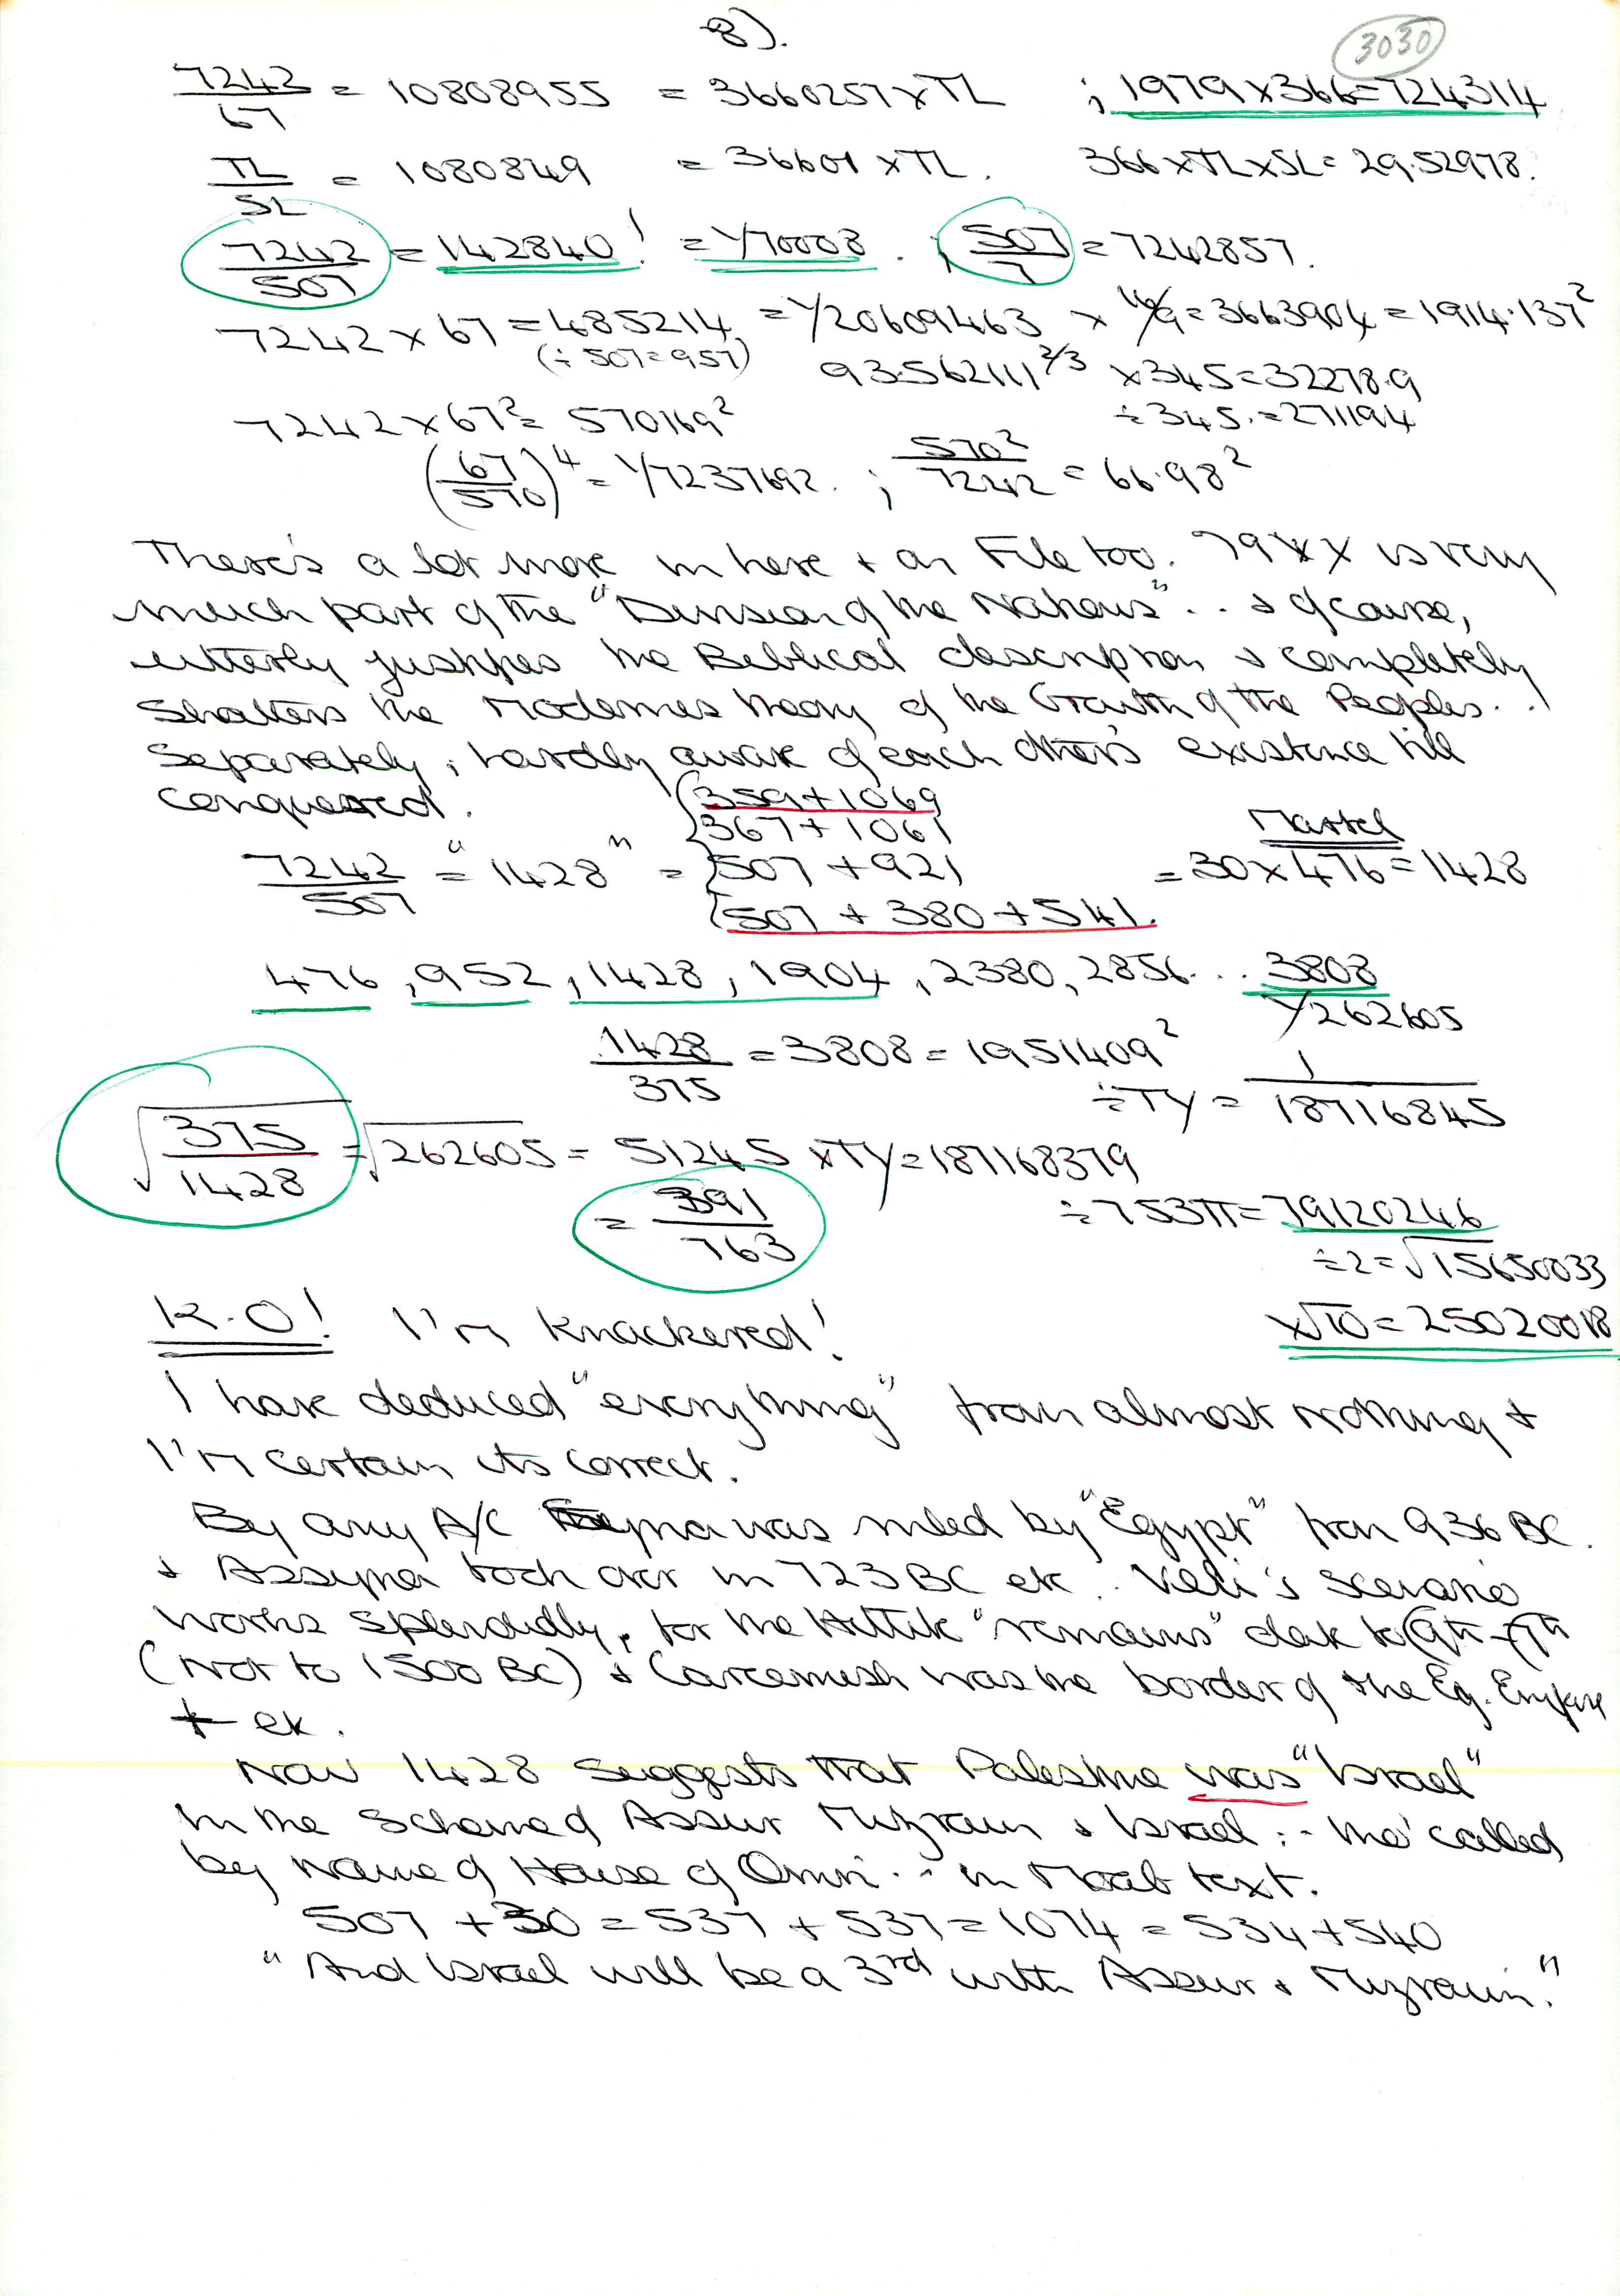 8).
3030
7242/67 = 10808955 = 3660257 x TL ; 1979 x 366 = 724314
TL/SL = 1080849 = 36601 x TL. 366 x TL x SL = 29.52978.
7242/507 = 142840! = 1/70008. ; 507/7 = 7242857.
7242 x 67 = 485214 = 1/20609463 x 16/9 = 3663904 = 1914.137²
(÷ 507 = 957) 93.562111^2/3 x 345 = 32278.9
7242 x 67² = 570169² ÷ 345. = 271194
(67/570)⁴ = 1/7237692. ; 570²/7242 = 66.98²
There's a lot more in here + on File too. is very
much part of the "Division of the Nations".. & of course,
utterly justifies the Biblical description & completely
Shatters the Modernes theory of the Growth of the Peoples..
Separately, hardly aware of each other's existence till
conquered.
359 + 1069
367 + 1061
7242/507 = "1428" = 507 + 921
507 + 380 + 541.
Martel
= 30 x 476 = 1428
476, 952, 1428, 1904, 2380, 2856... 3808
1/262605
1428/375 = 3808 = 1951409²
÷ TY = 1/18716845
√375/1428 = √262605 = 51245 x TY = 187168379
= 391/763
÷ 753π = 79120246
÷ 2 = √15650033
x√10 = 25020018
K.O! I'm Knackered!
I have deduced "everything" from almost nothing +
I'm certain its correct.
By any A/C was ruled by "Egypt" from 936 BC.
& Assyria took over in 723 BC etc. Veli's scenario
works splendidly, for the Hittite "remains" date to 9th-7th
(Not to 1500 BC) & Carcemish was the border of the Eg. Empire
etc.
Now 1428 suggests that Palestine was "Israel"
in the Scheme of Assur Mizraim & Israel :- tho' called
by name of House of Omri.. in Moab text.
507 + 30 = 537 + 537 = 1074 = 534 + 540
"And Israel will be a 3rd with Assur & Mizraim."